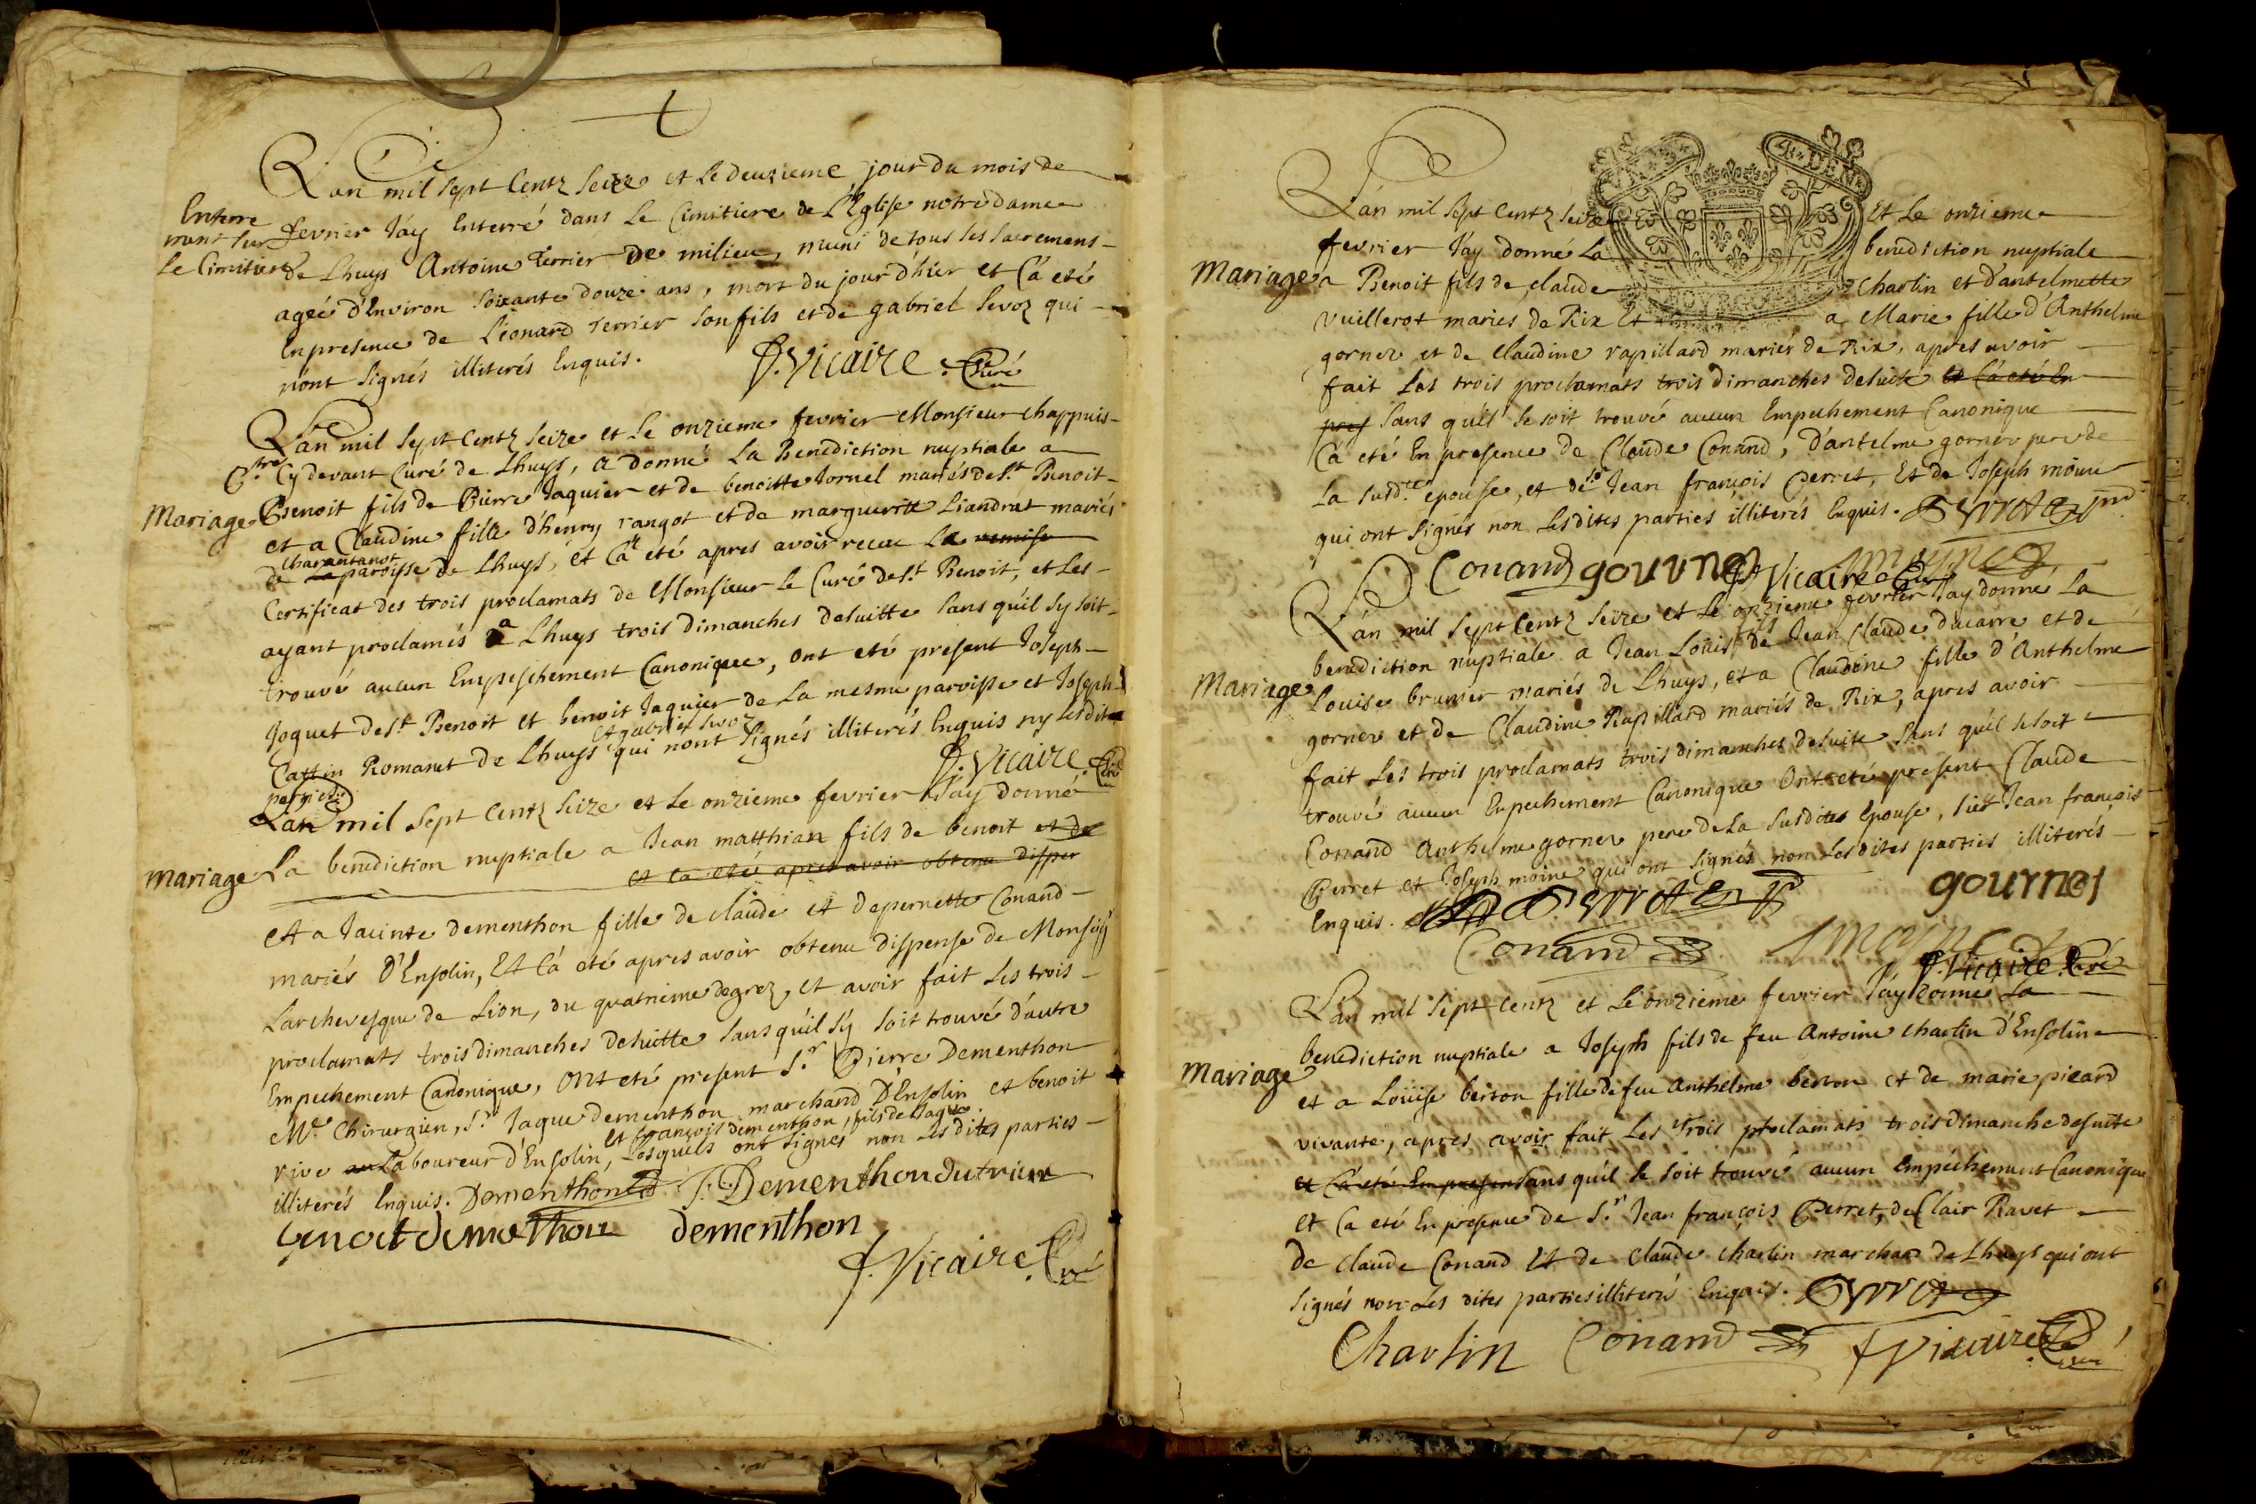 L'an mil sept Centz Seize et Le deuzieme jour du mois de
Enterre
ment sur
Le Cimitiere
fevrier J'ay Enterré dans Le Cimitiere de L'Eglise notre dame
de Lhuys Antoine Terrier de milieu, muni de tous ses sacremens
ageé d'Environ soixante douze ans, mort du jour d'hier et C'a eté
En presence de Léonard Terrier son fils et de gabriel Sevoz qui
n'ont signés illiterés Enquis. P. Vicaire Curé
L'an mil sept Centz Seize et Le onzieme fevrier Monsieur chappuis
Cy devant Curé de Lhuys, a donné La Benediction nuptiale a
Mariage
Benoit fils de Pierre Jaquier et de benoitte Jornel mariés de St. Benoit
et a Claudine fille d'henry rangot et de marguerite Liandrat mariés
charantanot
de La paroisse de Lhuys, et C'a eté apres avoir receu Le remise
Certificat des trois proclamats de Monsieur Le Curé de St. Benoit, et Les
ayant proclamés a Lhuys trois dimanches desuitte sans qu'il sy soit
trouvé aucun Empeschement Canonique, ont eté present Joseph
Joquet de St. Benoit et benoit Jaquier de La mesme paroisse et Joseph
et gabriel Sevoz
Cattin Romanet de Lhuys qui n'ont signés illiterés Enquis ny Lesdites
parties. P. Vicaire Curé
L'an mil sept Centz Seize et Le onzieme fevrier J'ay donné
Mariage
La benediction nuptiale a Jean matthian fils de benoit et de
et ca eté apres avoir obtenu disper
et a Jacinte dementhon fille de claude et depernette Conand
mariés d'Ensolin, Et C'a eté apres avoir obtenu dispense de Monseigr
L'archevesque de Lion, du quatrieme degrez, et avoir fait Les trois
proclamats trois dimanches desuitte sans qu'il s'y soit trouvé d'autre
Empechement Canonique, ont eté present Sr. Pierre Dementhon
Me. Chirurgien, Sr. Jaque dementhon marchand D'Ensolin et benoit
et françois dementhon, fils de Jaque
rive Laboureur d'Ensolin, Lesquels ont signés non Les dites parties
illiterés Enquis. Dementhon J. Dementhon
benoit dementhon dementhon
P. Vicaire Curé
DEN
L'an mil sept Centz Seize Et Le onzieme
fevrier J'ay donné La benediction nuptiale
Mariage
a Benoit fils de claude Charlin et d'antelmette
vuillerot mariés de Rix Et a Marie fille d'Anthelme
gorner et de claudine rapillard mariés de Rix, apres avoir
fait Les trois proclamats trois dimanches desuite et C'a eté En
pres sans qu'il se soit trouvé aucun Empechement Canonique
C'a eté En presence de Claude Conand, d'antelme gorner pere de
La susdte. epouse, et de Sr. Jean françois Perret, Et de Joseph moine
qui ont signés non Lesdites parties illiterés Enquis. Perret
Conand gournes Moyne P. Vicaire Curé
L'an mil sept Centz Seize et Le onzieme fevrier J'ay donné La
fils
benediction nuptiale a Jean Louis de Jean Claude ducarre et de
Mariage
Louise brunier mariés de Lhuys, et a Claudine fille d'Anthelme
gorner et de Claudine Rapillard mariés de Rix, apres avoir
fait Les trois proclamats trois dimanches desuite sans qu'il se soit
trouvé aucun Enpechement Canonique Ont eté present Claude
Conand Anthelme gorner pere de La susdites Epouse, sieur Jean françois
Perret et Joseph moine qui ont signés non Lesdites parties illiterés
Enquis. Perret gournes
Conand Moyne P. Vicaire Curé
L'an mil sept Centz et Le onzieme fevrier J'ay donné La
Mariage
benediction nuptiale a Joseph fils de feu Antoine charlin d'Ensolin
et a Loüise berton fille de feu anthelme berton et de marie picard
vivante, apres avoir fait Les Trois proclamats trois dimanche desuitte
et C'a eté En presen sans qu'il se soit trouvé aucun Empechement Canonique
et C'a eté En presence de Sr. Jean françois Perret, de Clair Ravet
de Claude Conand Et de Claude charlin marchand de Lhuys qui ont
signés non Les dites parties illiterés Enquis. Perret
Charlin Conand P. Vicaire Curé